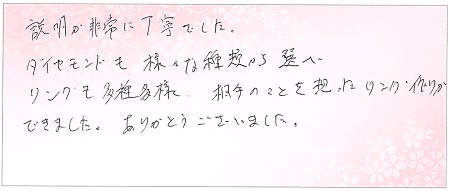 説明が非常に丁寧でした。
ダイヤモンドも様々な種類から選べ
リングも多種多様で、相手のことを想ったリング作りが
できました。ありがとうございました。